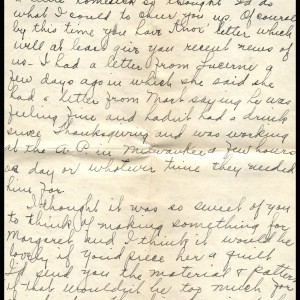 a little homesick so thought I'd do
what I could to cheer you up. Of course
by this time you have Knox' letter which
will at least give you recent news of
us - I had a letter from Lucerne a
few days ago in which she said she
had a letter from Mark saying he was
feeling fine and hadn't had a drink
since Thanksgiving and was working
at the A.P. in Milwaukee a few hours
a day or whatever time they needed
him for.
I thought it was so sweet of you
to think of making something for
Margaret and I think it would be
lovely if you'd piece her a quilt
I'd send you the material & pattern
if that wouldn't be too much for